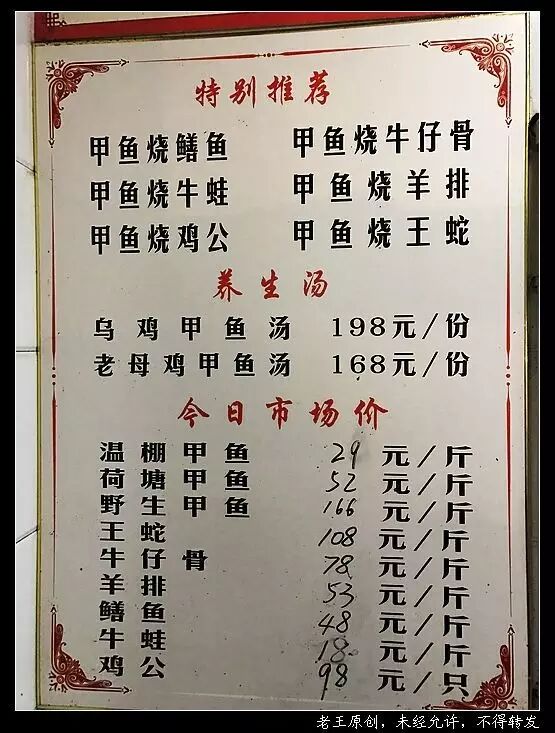 特别推荐
甲鱼烧鳝鱼 甲鱼烧牛仔骨
甲鱼烧牛蛙 甲鱼烧羊排
甲鱼烧鸡公 甲鱼烧王蛇
养生汤
乌鸡甲鱼汤 198元/份
老母鸡甲鱼汤 168元/份
今日市场价
温棚甲鱼 29元/斤
荷塘甲鱼 52元/斤
野生甲鱼 166元/斤
王蛇 108元/斤
牛仔骨 78元/斤
羊排 53元/斤
鳝鱼 48元/斤
牛蛙 18元/斤
鸡公 98元/只
老王原创，未经允许，不得转发